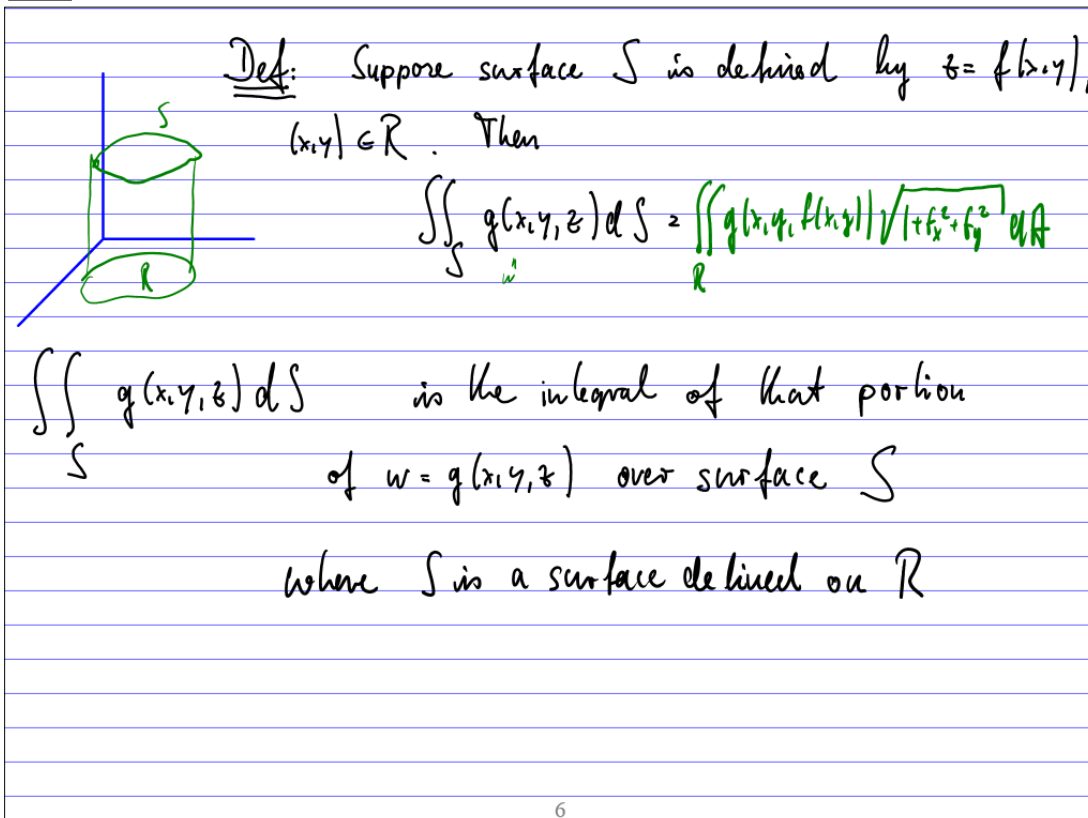 Def: Suppose surface S is defined by z = f(x,y),
(x,y) ∈ R. Then
S
R
∬_S g(x,y,z) dS = ∬_R g(x,y,f(x,y)) √(1+f_x²+f_y²) dA
w
∬_S g(x,y,z) dS is the integral of that portion
of w = g(x,y,z) over surface S
where S is a surface defined on R
6